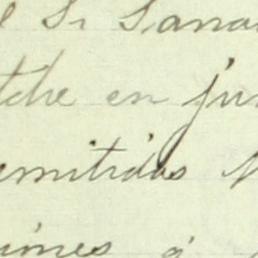 l Sr Sana
tche en ju
emitidas
imes á